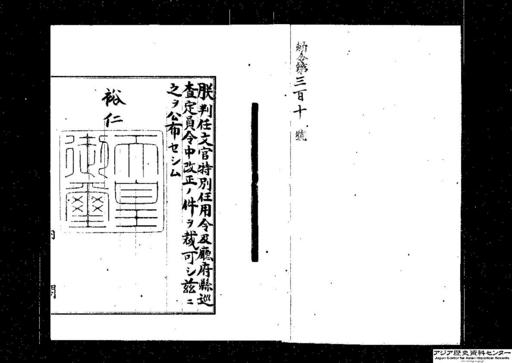 勅令第三百十號
朕判任文官特別任用令及廳府縣巡
査定員令中改正ノ件ヲ裁可シ茲ニ
之ヲ公布セシム
裕仁
天皇
御璽
内閣
アジア歴史資料センター
Japan Center for Asian Historical Records